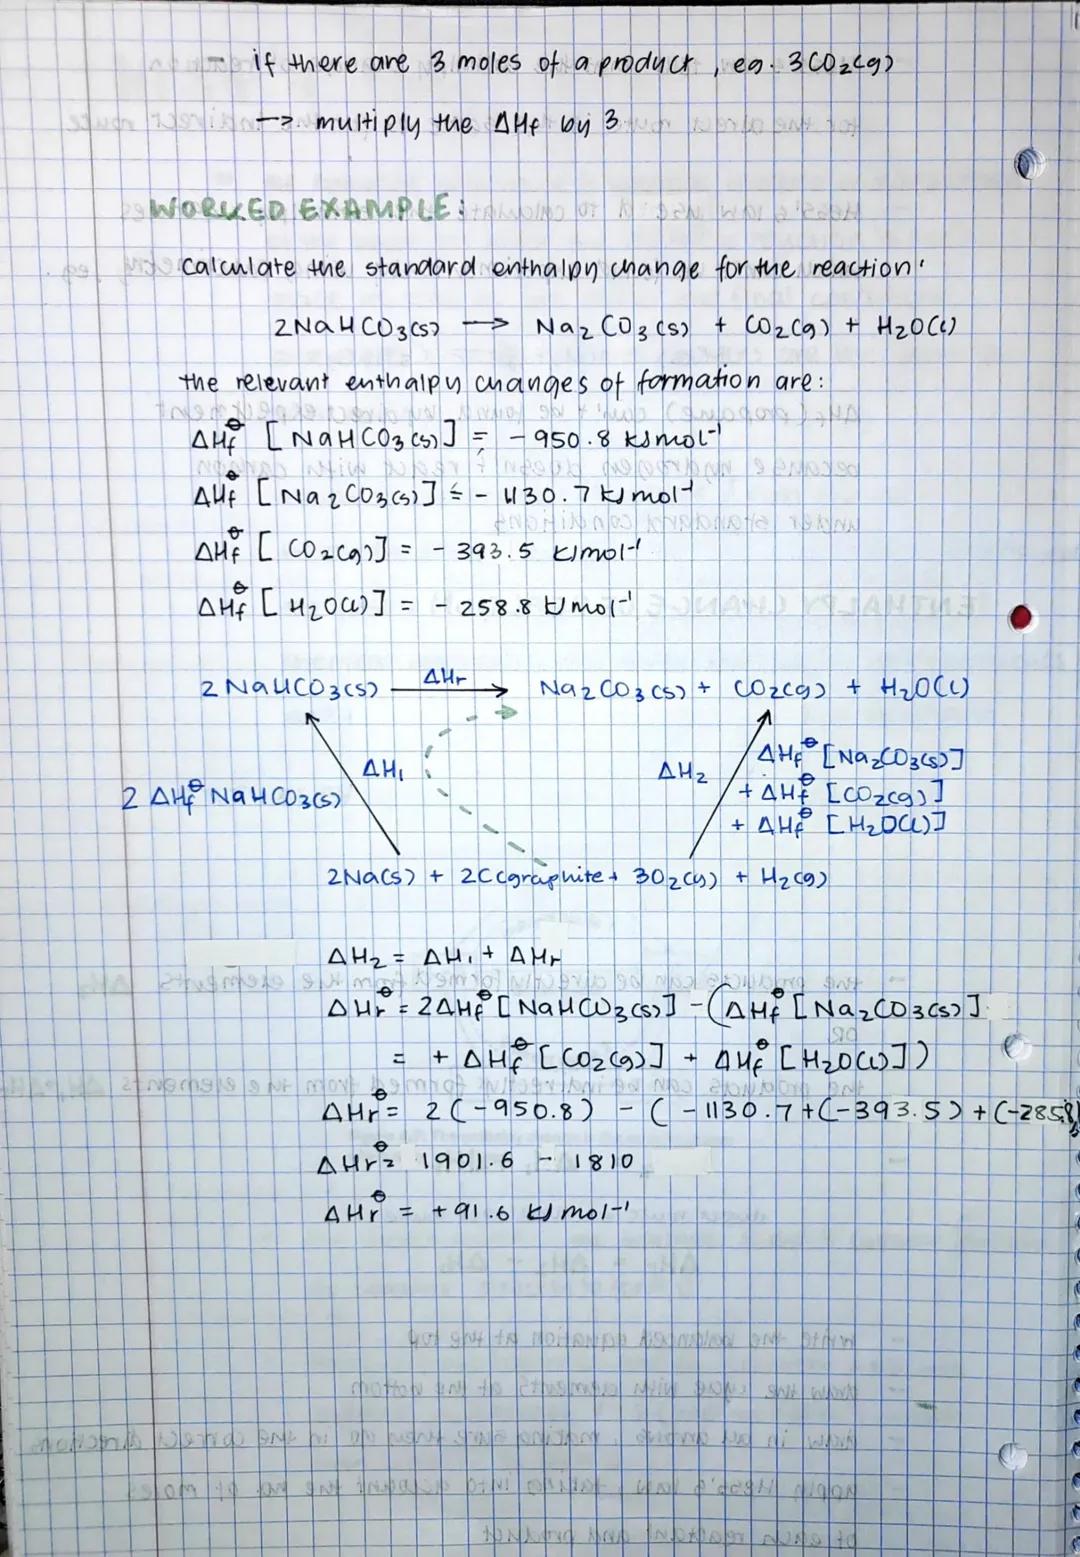 - if there are 3 moles of a product, eg. 3CO₂(g)
→ multiply the ΔHf by 3
WORKED EXAMPLE:
Calculate the standard enthalpy change for the reaction:
2NaHCO₃(s) → Na₂CO₃(s) + CO₂(g) + H₂O(l)
the relevant enthalpy changes of formation are:
ΔHf⦵ [NaHCO₃(s)] = -950.8 kJmol⁻¹
ΔHf⦵ [Na₂CO₃(s)] = -1130.7 kJmol⁻¹
ΔHf⦵ [CO₂(g)] = -393.5 kJmol⁻¹
ΔHf⦵ [H₂O(l)] = -258.8 kJmol⁻¹
2NaHCO₃(s) ΔHr → Na₂CO₃(s) + CO₂(g) + H₂O(l)
ΔH₁ ΔH₂ ΔHf⦵ [Na₂CO₃(s)]
2 ΔHf⦵ NaHCO₃(s) + ΔHf⦵ [CO₂(g)]
+ ΔHf⦵ [H₂O(l)]
2Na(s) + 2C(graphite + 3O₂(g) + H₂(g)
ΔH₂ = ΔH₁ + ΔHr
ΔHr⦵ = 2ΔHf⦵ [NaHCO₃(s)] - (ΔHf⦵ [Na₂CO₃(s)]
= + ΔHf⦵ [CO₂(g)] + ΔHf⦵ [H₂O(l)])
ΔHr⦵ = 2(-950.8) - (-1130.7+(-393.5)+(-285.8)
ΔHr⦵ = 1901.6 - 1810
ΔHr⦵ = +91.6 kJmol⁻¹